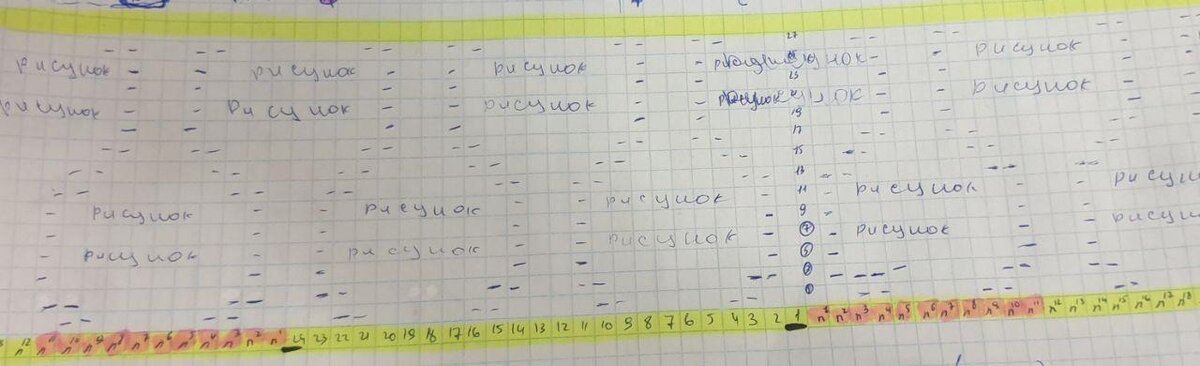 27
рисунок рисунок рисунок рисунок
23
рисунок рисунок рисунок рисунок
19
17
15
13
11
рисунок рисунок рисунок рисунок
9
7
рисунок рисунок рисунок рисунок рисунок
5
3
1
n12 n11 n10 n9 n8 n7 n6 n5 n4 n3 n2 n1 24 23 22 21 20 19 18 17 16 15 14 13 12 11 10 9 8 7 6 5 4 3 2 1 n1 n2 n3 n4 n5 n6 n7 n8 n9 n10 n11 n12 n13 n14 n15 n16 n17 n18